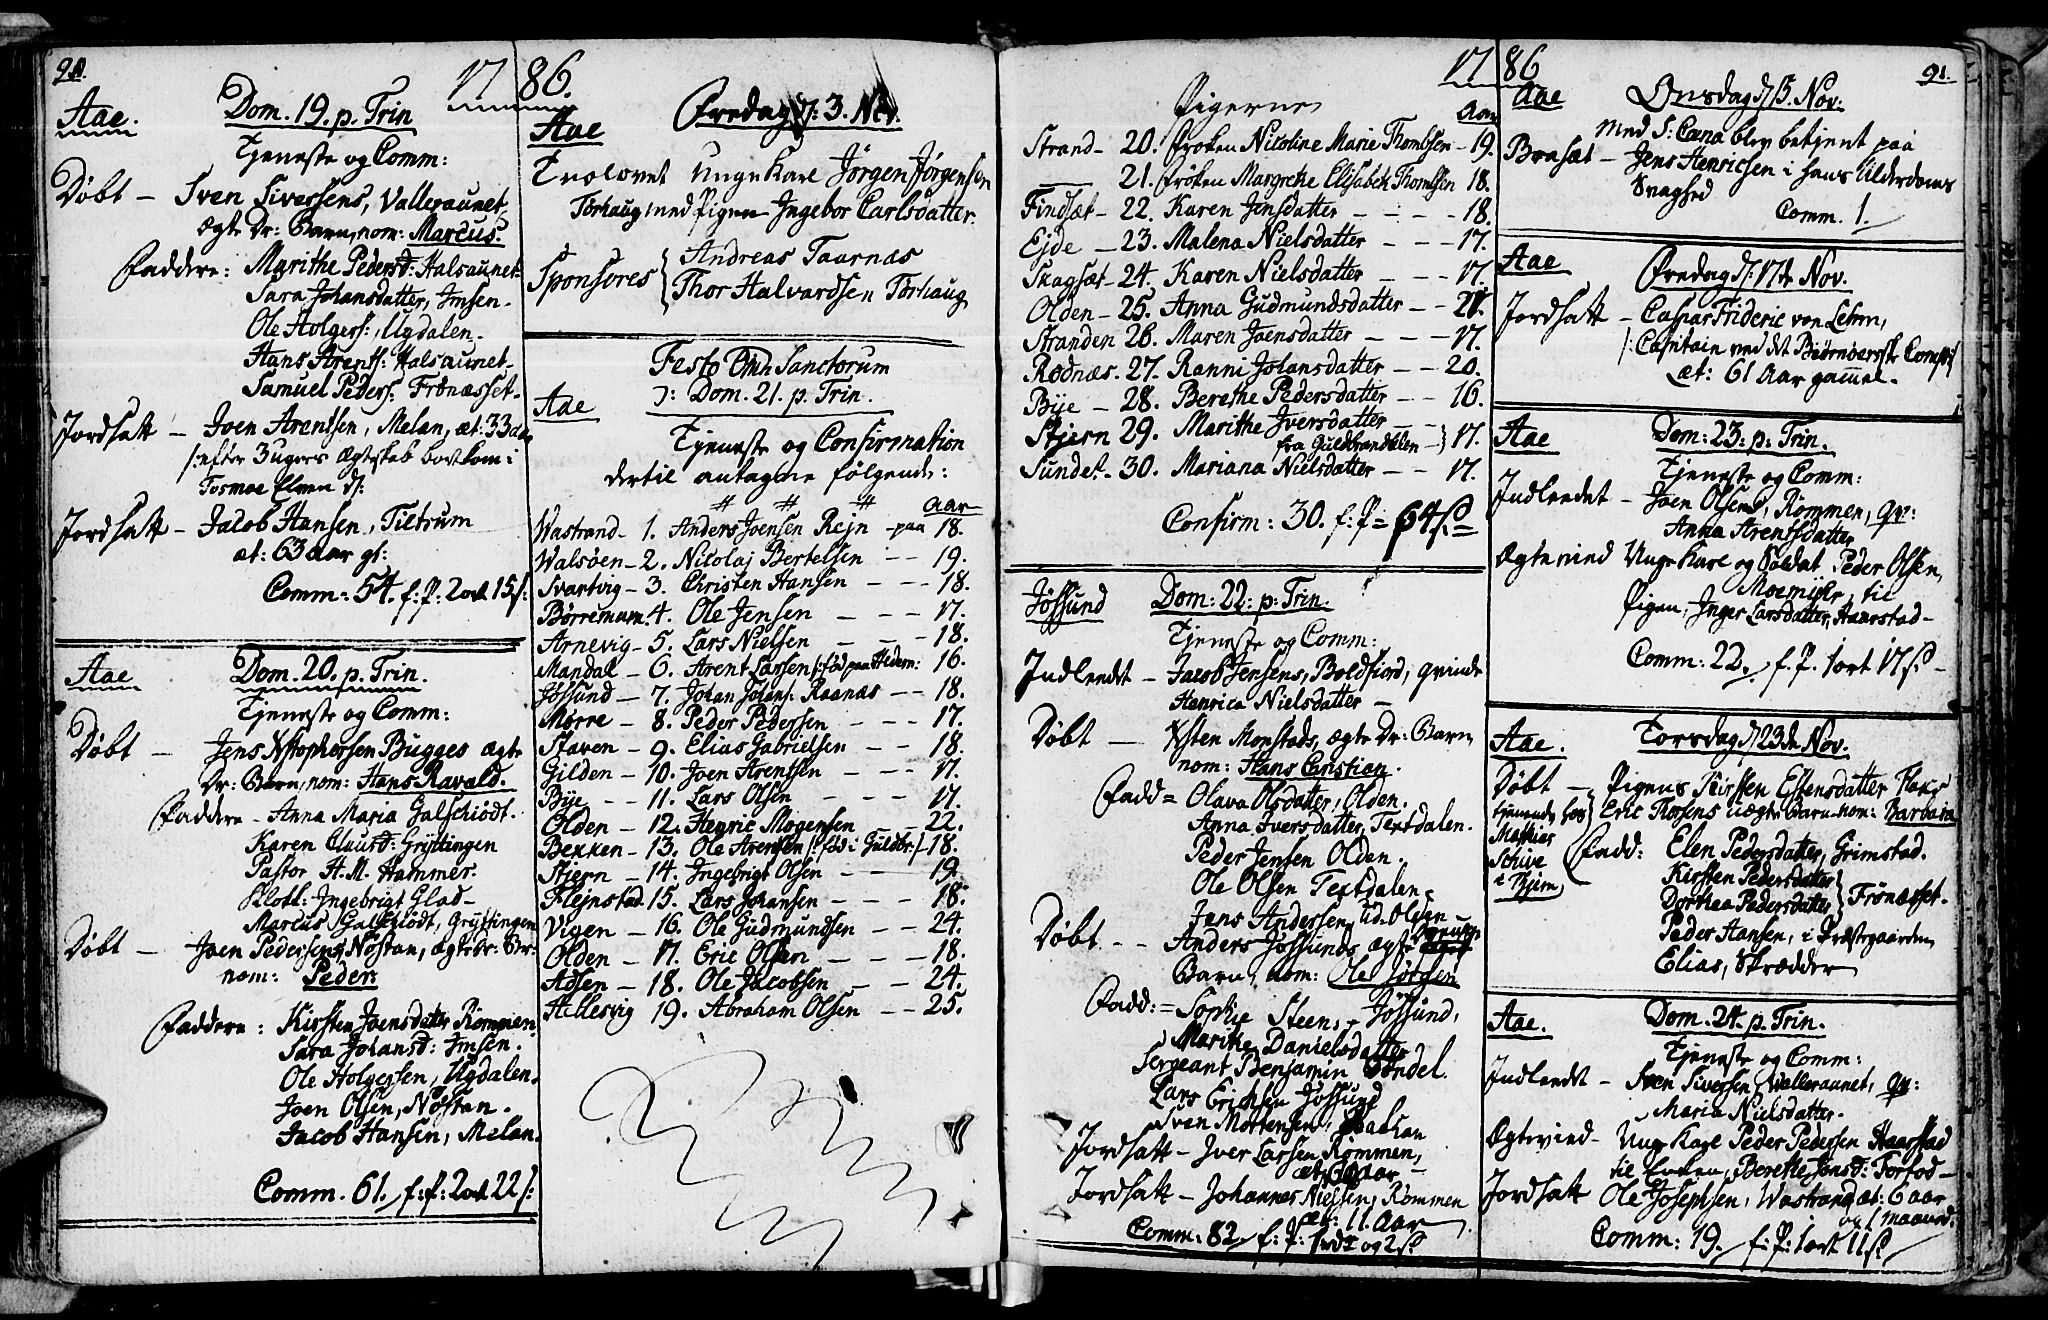 90.
1786.
Aae. Dom. 19. p. Trin
Tjeneste og Comm:
Døbt – Sven Siversens, Valleraunet,
ægte Dr: Barn, nom: Marcus.
Faddere: Marithe Pedersd: Halsaunet-
Sara Johansdatter, Imsen-
Ole Holgers:, Ugdalen-
Hans Arents: Halsaunet-
Samuel Peders: Frønæsset-
Jordsatt – Joen Arentsen, Melan, æt: 33 aar
/:efter 3 ugers ægteskab bortkom i
Elven d/:
Jordsatt – Jacob Hansen, Tiltrum
æt: 63 aar gl:
Comm: 54. f: P: 2 ort 15 s:
Aae Dom. 20. p. Trin.
Tjeneste og Comm:
Døbt – Jens Xstophersen Bugges ægte
Dr: Barn, nom: Hans Ravald.
Faddere – Anna Maria Galschiødt.
Karen Clausd: Grÿttingen
Pastor H. M. Hammer.
Klokk: Ingebrigt Glad-
Marcus Galschiødt, Grÿttingen
Døbt – Joen Pedersens, Nøstan, ægte Dr: Bar:
nom: Peder.
Faddere: Kirsten Joensdatter Rømmen
Sara Johansd: Imsen.
Ole Holgersen, Ugdalen.
Joen Olsen, Nøstan.
Jacob Hansen, Melan.
Comm. 61. f: P: 2 ort 22 s:
Aae Fredag d: 3. Nov.
Trolovet Unge Karl Jørgen Jørgensen
Tørhaug med Pigen Ingebor Carlsdatter.
Sponsores { Andreas Taarnæs
Thor Halvardsen Tørhaug
Festo Omn Sanctorum
Aae ɔ: Dom. 21. p. Trin.
Tjeneste og Confirmation
dertil antagne følgende:
# # # Aar
Wastrand – 1. Anders Joensen Rejn – paa 18.
Walsøen – 2. Nicolaj Bertelsen – – 19.
Svartvig – 3. Christen Hansen – – – 18.
Børresmam 4. Ole Jensen – – – 17.
Arnevig – 5. Lars Nielsen – – – 18.
Mandal – 6. Arent Larsen /:fød paa Hedem: 16.
Jøssund – 7. Johan Johans: Raanæs – – 18.
Mørre – 8. Peder Pedersen – – – 17.
Staven – 9. Elias Gabrielsen – – 18.
Gilden – 10. Joen Arentsen – – – 17.
Bÿe – – 11. Lars Olsen – – – 17.
Olden – 12. Henric Mogensen – – 22.
Bekken – 13. Ole Arensen /: fød i Guldbr:/ 18.
Stjern – 14. Ingebrigt Olsen – – 19.
Flejnstad 15. Lars Johansen – – – 18.
Vigen – 16. Ole Gudmundsen – – 24.
Olden – 17. Eric Olsen – – – – 18.
Adsen – 18. Ole Jacobsen – – 24.
Hellesvig 19. Abraham Olsen – – 25.
1786
91.
Pigerne Aar
Strand – 20. Frøken Nicoline Marie Thomsen – 19.
21. Frøken Margrethe Elisabeth Thomsen 18.
Findsæt – 22. Karen Jensdatter – – – – 18.
Ejde – 23. Malena Nielsdatter – – – 17.
Skagsæt – 24. Karen Nielsdatter – – – 17.
Olden – 25. Anna Gudmundsdatter – – 21.
Stranden 26. Maren Joensdatter – – – 17.
Rødnæs. 27. Ranni Johansdatter – – 20.
Bÿe – 28. Berethe Pedersdatter – – 16.
Stjern 29. Marithe Iversdatter –
fra Guldbrandsdalen – } 17.
Sundet – 30. Mariana Nielsdatter – – 17.
Confirm: 30. f: P = 64 s
Jøssund Dom: 22: p: Trin.
Tjeneste og Comm:
Indleedet – Jacob Jensens, Boldfiord, qvinde
Henrica Nielsdatter –
Døbt – Xsten Monstads, ægte Dr: Barn
nom: Hans Christian.
Fadd = Olava Olsdatter, Olden.
Anna Iversdatter, Textdalen.
Peder Jensen Olden.
Ole Olsen Textdalen.
Jens Andersen, Olden –
Døbt – – Anders Jøssunds ægte
Barn, nom: Ole Jørgen
Fadd: = Sophie Steen, – Jøssund,
Marithe Danielsdatter
Sergeant Benjamin Bøndel.
Lars Erichsen Jøssund
Sven Mortensen,
Jordsatt – Iver Larsen Rømmen,
æt: aar –
Jordsatt – Johannes Nielsen, Rømmen
æt: 11. Aar
Comm: 82. f: P: 1 ort og 2 s.
Aae Onsdag d/ 15. Nov:
Med S: Cæna blev betjent paa
Bonsæt – Jens Henricsen i hans Alderdoms
Svaghed Comm. 1.
Aae Fredag d/: 17de Nov.
Jordsatt – Caspar Frideric von Lehm,
/: Capitain ved det Biørnøerske Comp:/
æt: 61 Aar gammel.
Aae Dom: 23: p: Trin.
Tjeneste og Comm:
Indleedet – Joen Olsens, Rømmen, qv:
Anna Arentsdatter
Ægteviid Unge Karl og Soldat Peder Olsen,
Moemÿhr, til
Pigen, Inger Larsdatter, Haarstad –
Comm: 22. f. P. 1 ort 17 s –
Aae. Torsdag d/ 23de Nov.
Døbt – Pigens Kirsten Estensdatter
tjenende hos Mathias Schive i Stjern } Eric Thorsens uægte Barn nom: Barbara
Fadd: Elen Pedersdatter, Grimstad.
Kirsten Pedersdatter
Dorthea Pedersdatter } Frønæsset.
Peder Hansen, i Præstegaarden
Elias, Skrædder
Aae. Dom. 24. p. Trin.
Tjeneste og Comm:
Indleedt – Sven Siversen Valleraunet, qv:
Maria Nielsdatter.
Ægteviid – Unge Karl Peder Pedersen Haarstad
til Enken, Berethe Jensd: Forfod –
Jordsatt Ole Josephsen, Wastrand æt: 6 aar
og 1 maaned.
Comm: 19. f: P: 1 ort 11 s